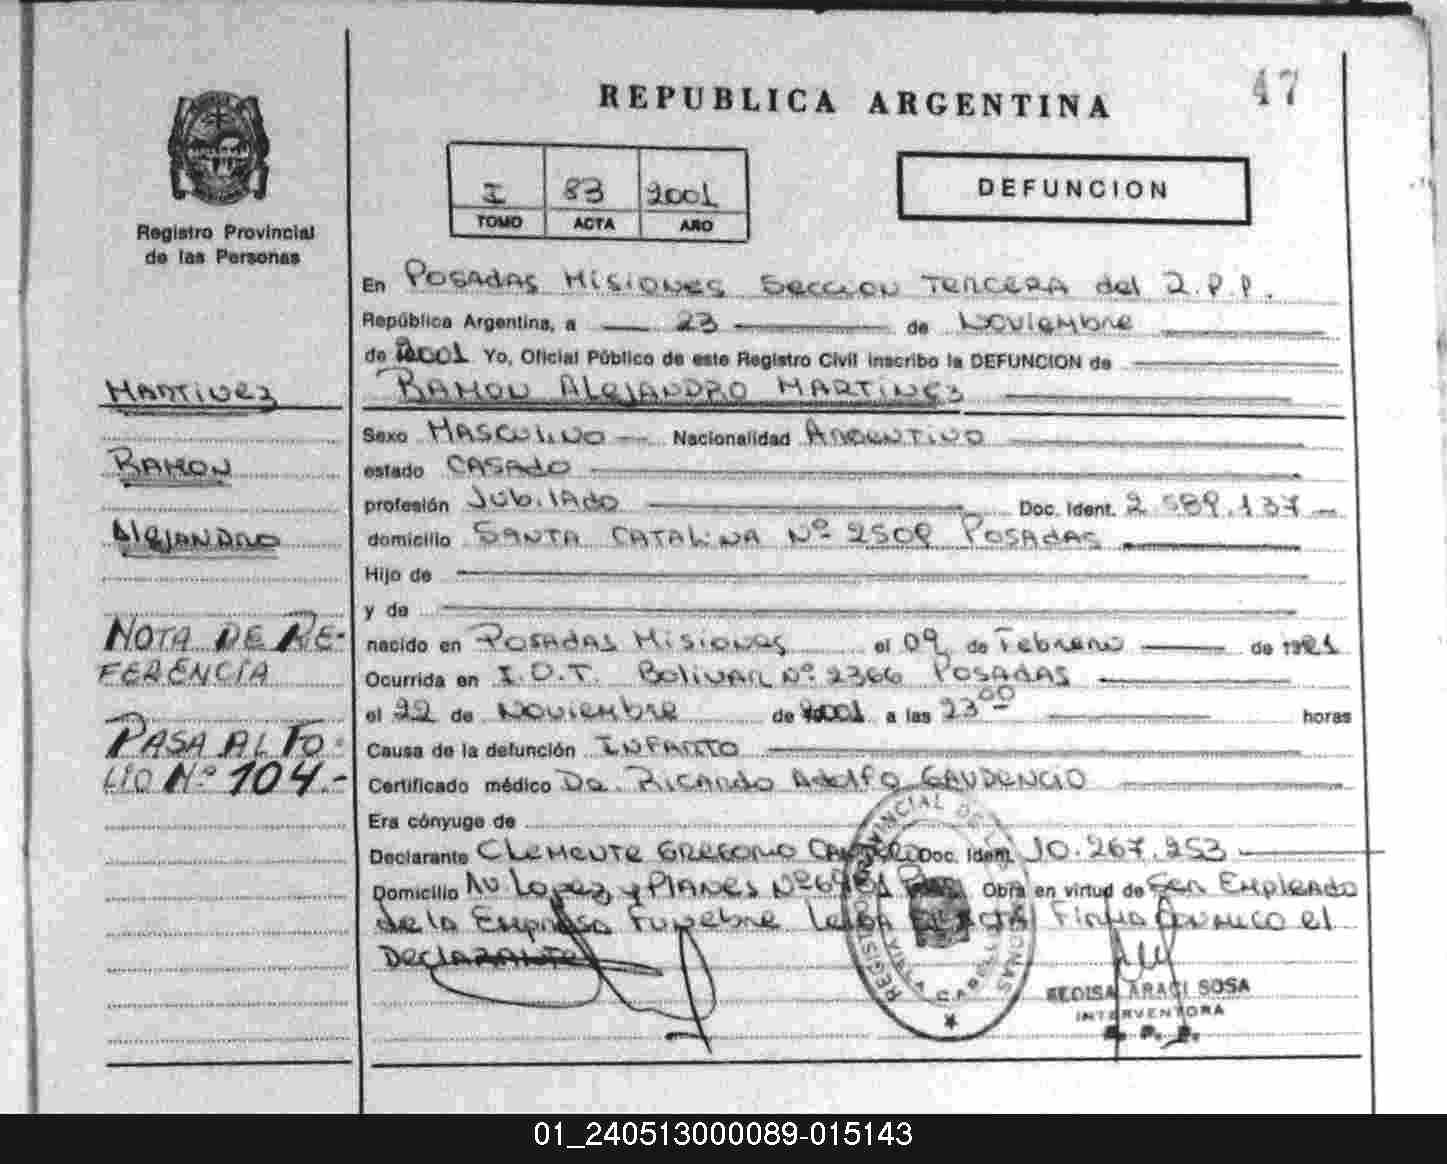 47
REPUBLICA ARGENTINA
I 83 2001
TOMO ACTA AÑO
DEFUNCION
Registro Provincial
de las Personas
En POSADAS MISIONES SECCION TERCERA del R.P.P.
República Argentina, a 23 de Noviembre
de 2001 Yo, Oficial Público de este Registro Civil inscribo la DEFUNCION de
MARTINEZ
RAMON ALEJANDRO MARTINEZ
Sexo MASCULINO Nacionalidad ARGENTINO
RAMON
estado CASADO
profesión JUBILADO Doc. Ident. 2.589.137
ALEJANDRO
domicilio SANTA CATALINA Nº 2509 POSADAS
Hijo de
y de
NOTA DE RE-
FERENCIA
nacido en POSADAS MISIONES el 09 de Febrero de 1921
Ocurrida en I.O.T. BOLIVAR Nº 2366 POSADAS
el 22 de NOVIEMBRE de 2001 a las 23 00 horas
PASA AL FO-
LIO Nº 104.-
Causa de la defunción INFARTO
Certificado médico DR. RICARDO ADOLFO GAUDENCIO
Era cónyuge de
Declarante CLEMENTE GREGORIO Doc. Ident. 10.267.253
Domicilio AV. LOPEZ y PLANES Nº Obra en virtud de Ser EMPLEADO
de la EMPRESA FUNEBRE ACTA Firma el
DECLARANTE
REGISTRO PROVINCIAL DE LAS PERSONAS
VILLA CABELLO
ARACI SOSA
INTERVENTORA
R. P. P.
01_240513000089-015143